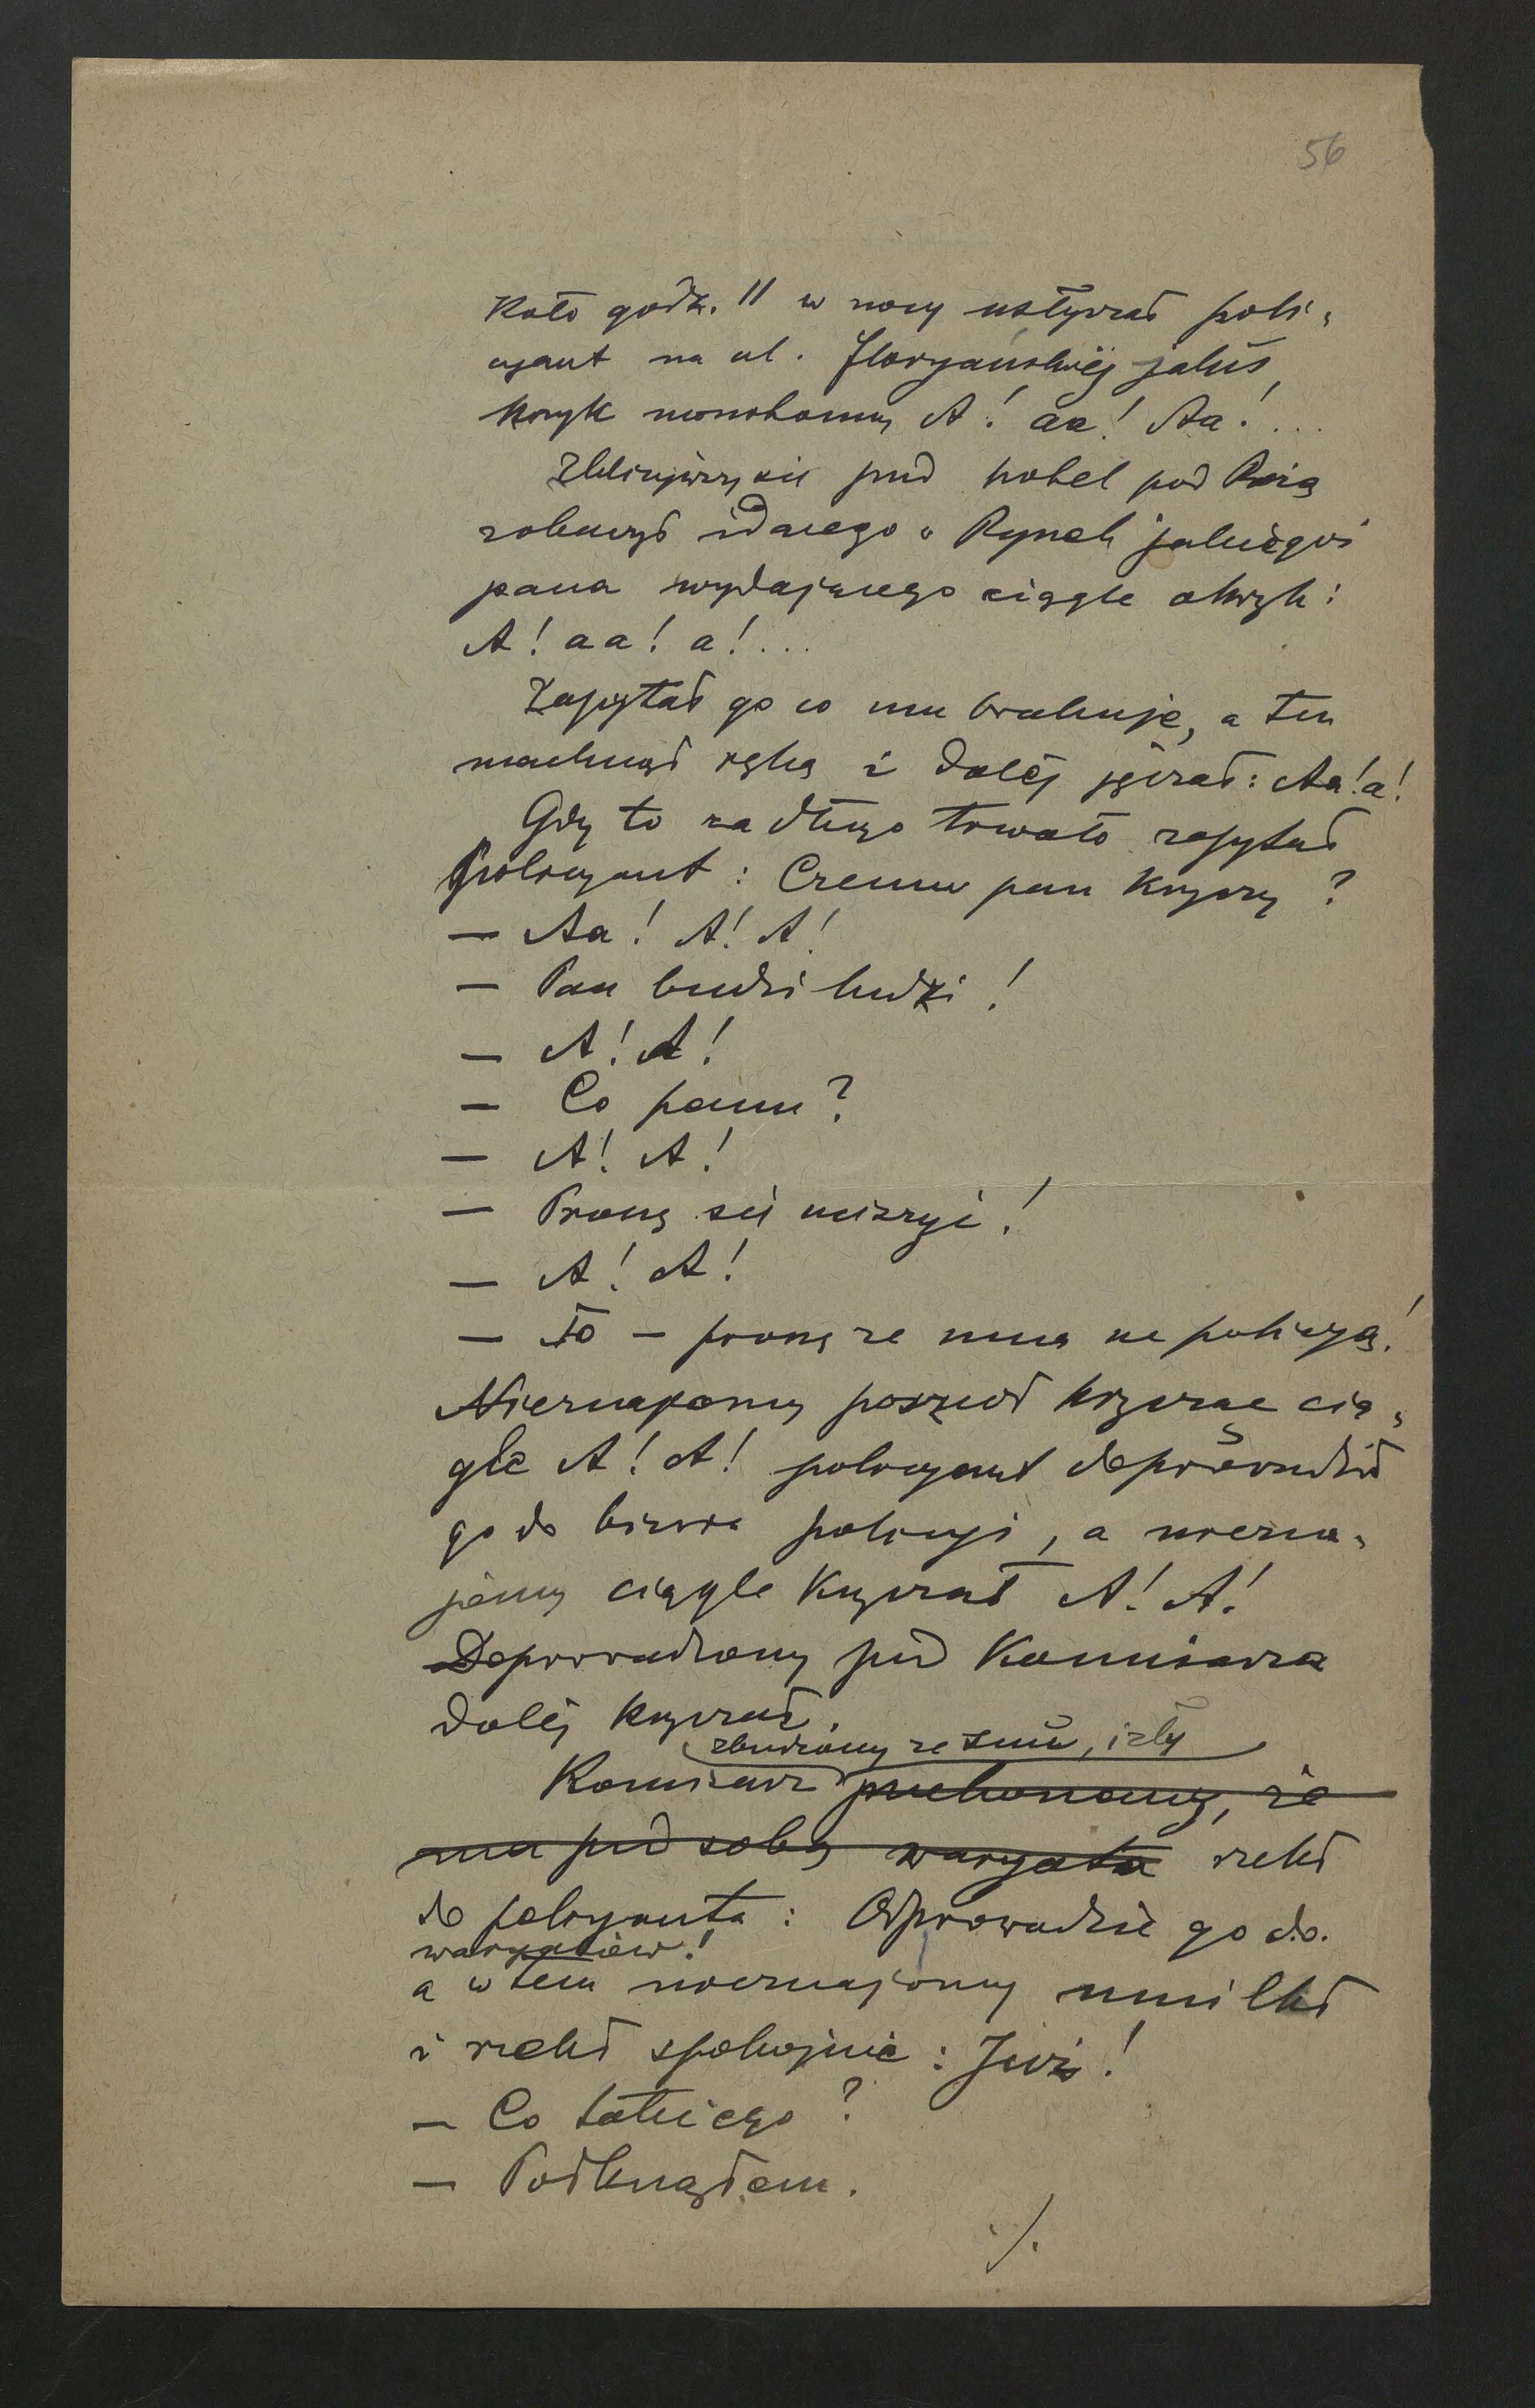 56
Koło godz. 11 w nocy usłyszał poli-
cyant na ul. Floryańskiéj jakiś
krzyk monotonny A! aa! Aa! ...
Zbliżywszy się pod hotel pod Różą
zobaczył idącego z Rynek jakiegoś
pana wydającego ciągle okrzyk:
A! aa! a! ...
Zapytał go co mu brakuje, a ten
machnął ręką i daléj jęczał: Aa! a!
Gdy to za długo trwało zapytał
policyant: Czemu pan krzyczy?
— Aa! A! A!
— Pan budzi ludzi!
— A! A!
— Co panu?
— A! A!
— Proszę się uciszyć!
— A! A!
— To — proszę ze mną na policyą!
Nieznajomy poszedł krzycząc cią-
gle A! A! policyant doprowadził
go do biura policyi, a niezna-
jomy ciągle krzyczał A! A!
Doprowadzony przed Komisarza
daléj krzyczał.
zbudzony ze snu, i zły
Komisarz przekonany, że
ma przed sobą waryata rzekł
do policyanta: Odprowadzić go do
waryatów!
a w tem nieznajomy umilkł
i rzekł spokojnie: Już!
— Co takiego?
— Połknąłem.
./.